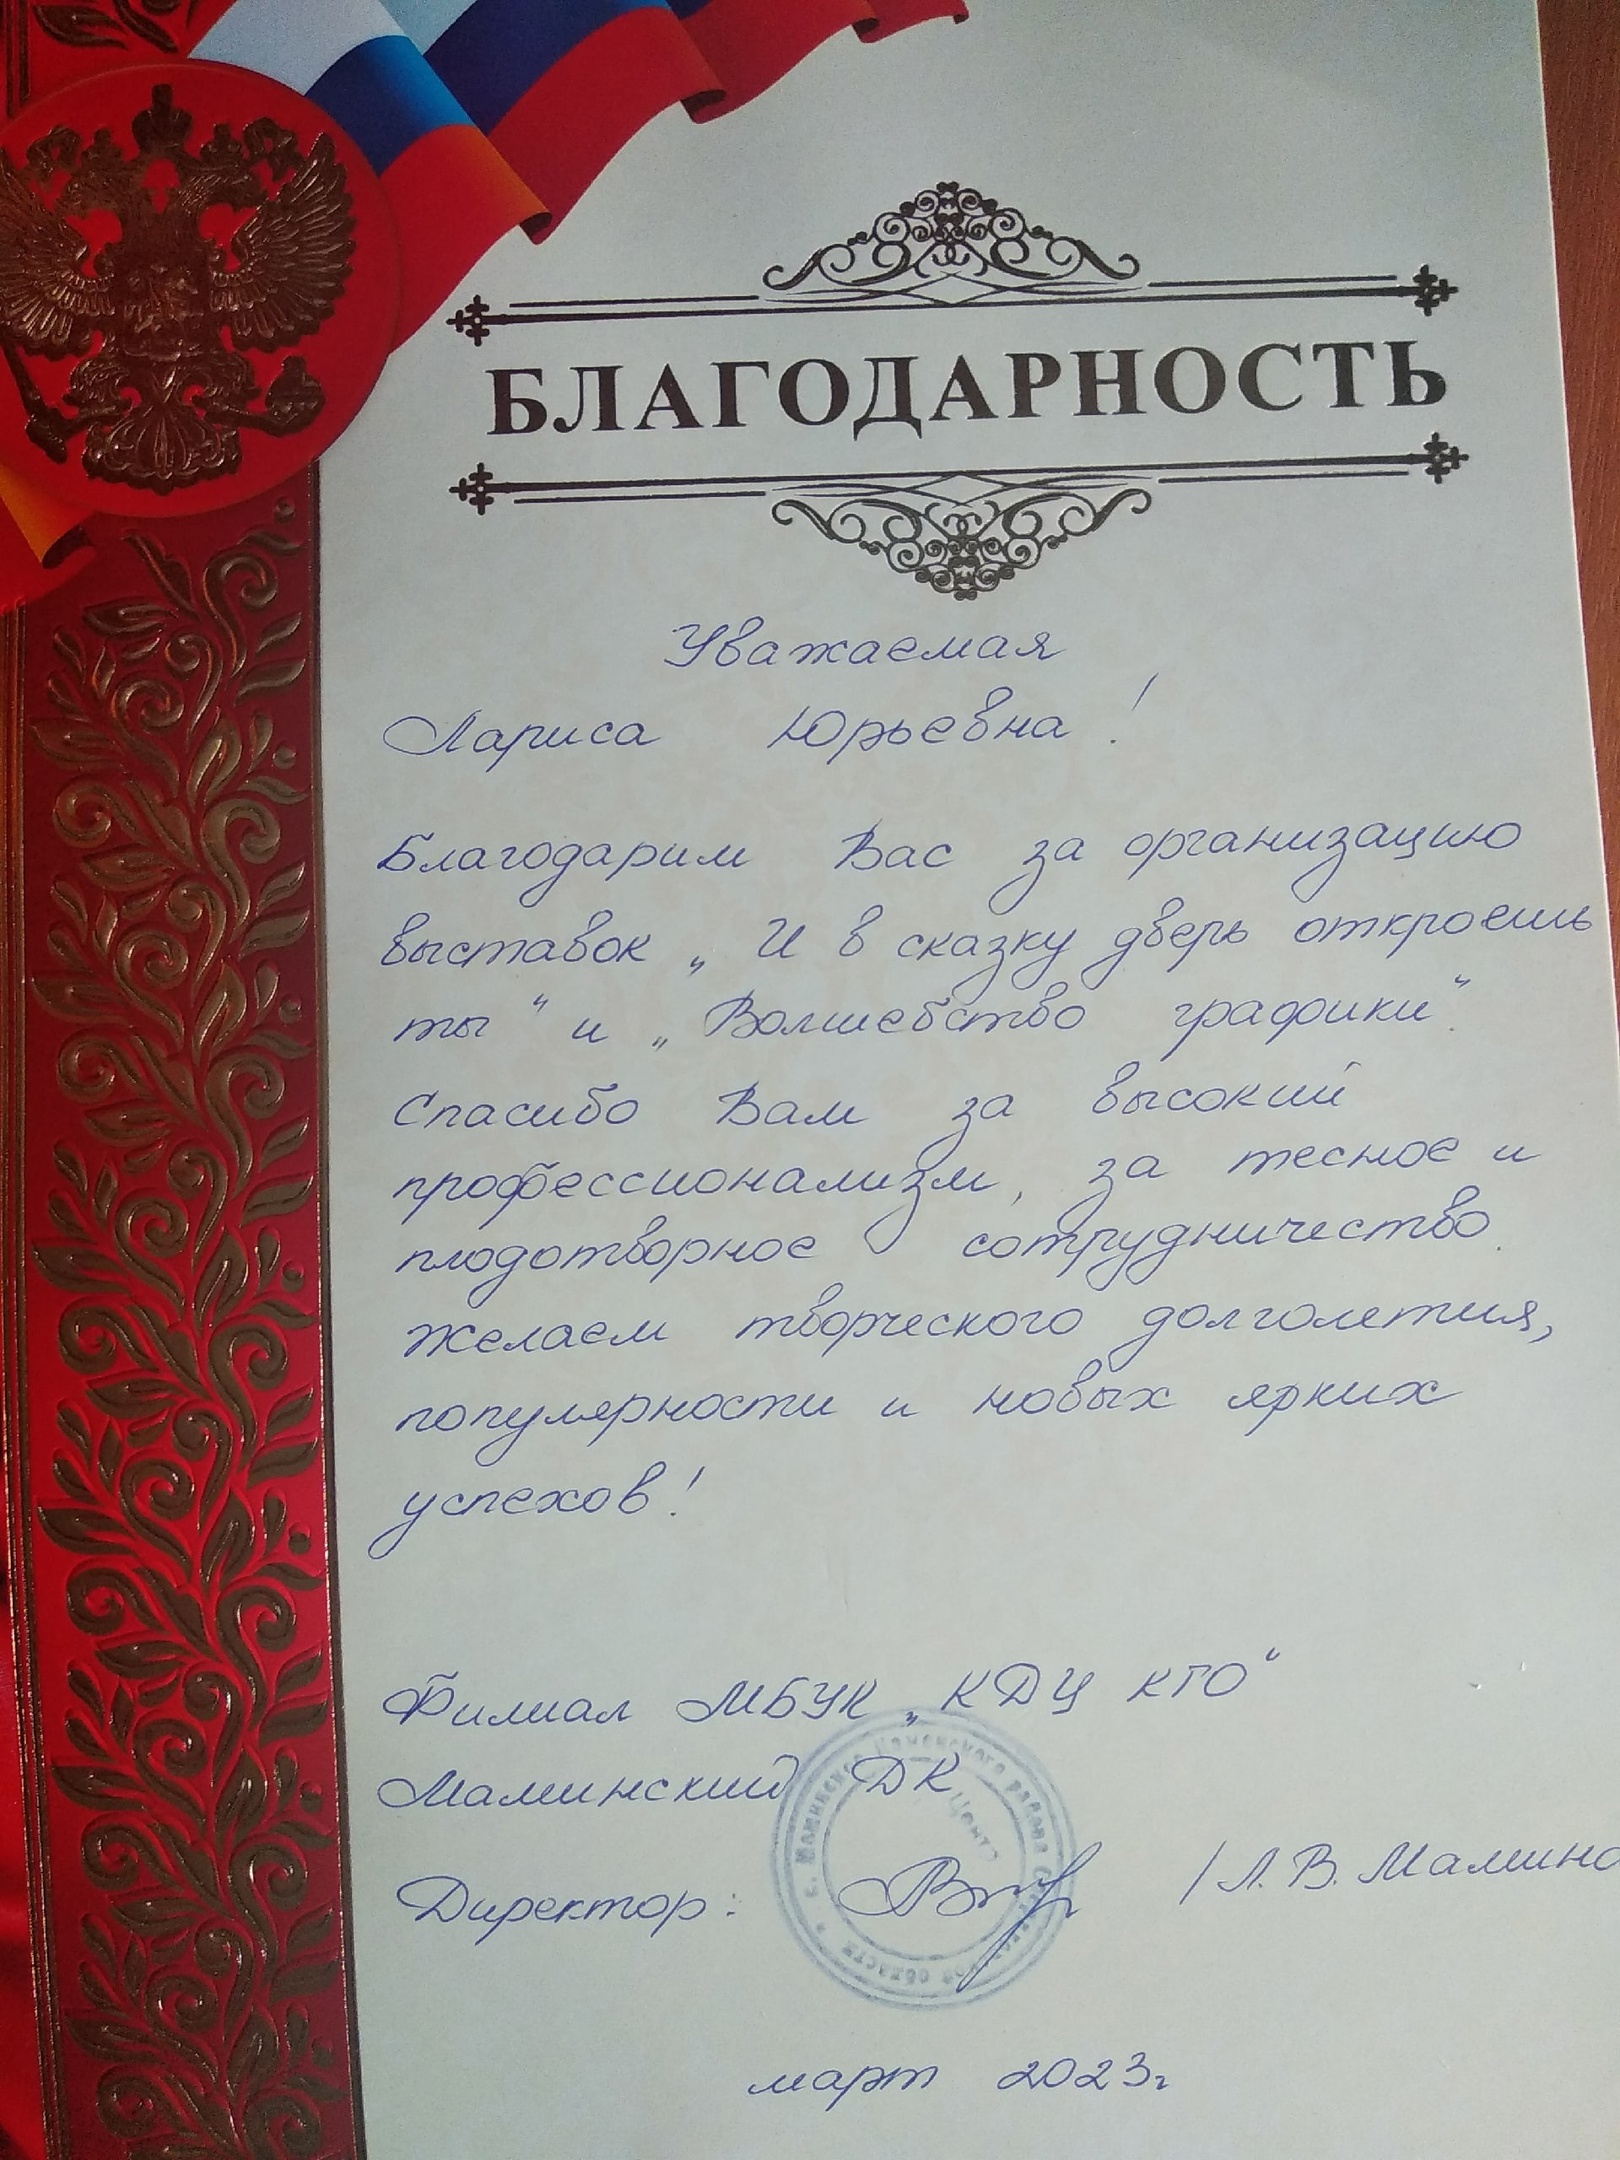 БЛАГОДАРНОСТЬ
Уважаемая
Лариса Юрьевна!
Благодарим Вас за организацию
выставок „И в сказку дверь откроешь
ты" и „Волшебство графики".
Спасибо Вам за высокий
профессионализм, за тесное и
плодотворное сотрудничество.
Желаем творческого долголетия,
популярности и новых ярких
успехов!
Филиал МБУК „КДЦ КГО"
Маминский ДК
с. Маминское Каменского района области
Центр
Директор: /Л. В. Мамина
март 2023г